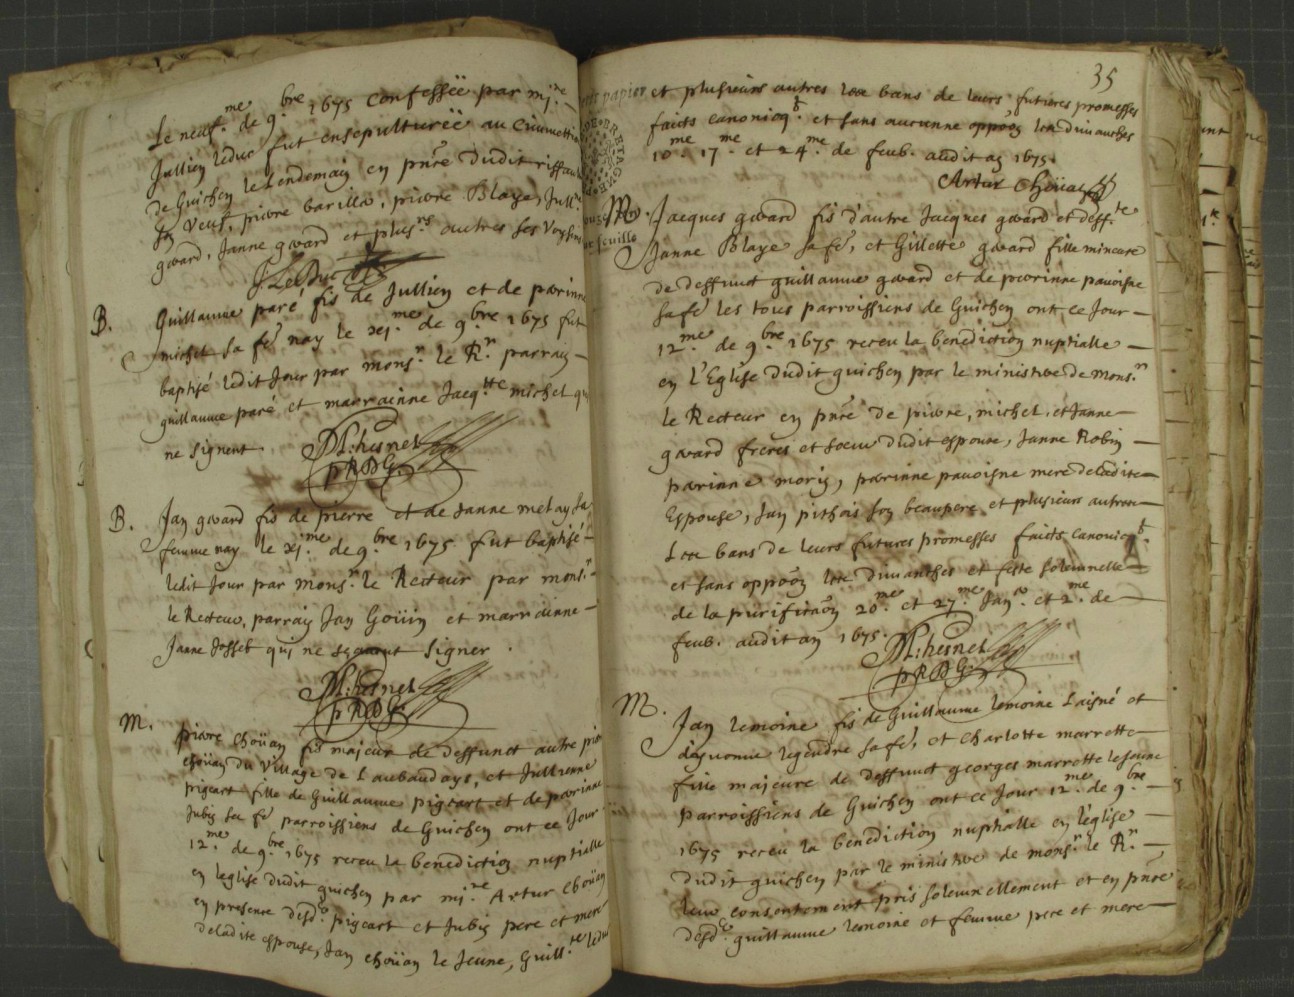 Le neuf.me de 9.bre 1675 confessée par mi.re
Jullien leduc fut ensepulturée au Cimmettie
de Guichen le Lendemain en pnce dudit riffau
sa veuf, pierre barilla, pierre Blaye, Jull.n
gerard, Janne gerard et plus.rs autres ses Voysins
J Leduc
B. Guillaume paré fis de Jullien et de perrinne
michel sa fe nay le xi.me de 9.bre 1675 fut
baptisé ledit Jour par mons.r le R.r parrain
guillaume paré et marrainne Jacq.tte michel qui
ne signent
M: hesnel
p R D G.
B. Jan gerard fis de pierre et de Janne melay sa
femme nay le xi.me de 9.bre 1675 fut baptisé
ledit Jour par mons.r le Recteur par mons.r
le Recteur, parrain Jan Goüin et marrainne
Janne Josset qui ne sçavent signer.
M: hesnel
p R D G.
M. pierre choüan fis majeur de deffunct autre pierre
choüan du Village de Laubaudays, et Jullienne
pigeart fille de Guillaume pigeart et de perrinne
Jubin sa fe parroissiens de Guichen ont ce Jour
12.me de 9.bre 1675 receu la benediction nuptialle
en leglise dudit guichen par mi.re Artur choüan
en presence desd. pigeart et Jubin pere et mere
deladite espouse, Jan choüan le Jeune, Guill.me leduc
35
et plusieurs autres les bans de leurs futures promesses
faicts canonicq.t et sans aucunne oppoon les dimanches
10.me 17.me et 24.me de feub. audit an 1675.
Artur Choüan
M. Jacques gerard fis d'autre Jacques gerard et deff.te
Janne Blaye sa fe, et Gillette gerard fille mineure
de deffunct guillaume gerard et de perrinne pavoisne
sa fe les tous parroissiens de Guichen ont ce Jour
12.me de 9.bre 1675 receu la benediction nuptialle
en l'Eglise dudit guichen par le ministere de mons.r
le Recteur en pnce de pierre, michel, et Janne
gerard freres et soeur dudit espoux, Janne Robin
perrinne morin, perrinne pavoisne mere deladite
Espouse, Jan pithois son beaupere et plusieurs autres
Les bans de leurs futures promesses faicts canonicq.t
et sans oppoon les dimanches et feste solemnelle
de la purification 20.me et 27.me Jan.r et 2.me de
feub. audit an 1675.
M: hesnel
p R D G.
M. Jan lemoine fis de Guillaume lemoine Laisné et
dyvonne legendre sa fe, et Charlotte marrette
fille majeure de deffunct georges marrette
parroissiens de Guichen ont ce Jour 12.me de 9.bre
1675 receu la benediction nuptialle en l'eglise
dudit guichen par le ministere de mons.r le R.r
leur consentement pris solemnellement et en pnce
desd. guillaume lemoine et femme pere et mere